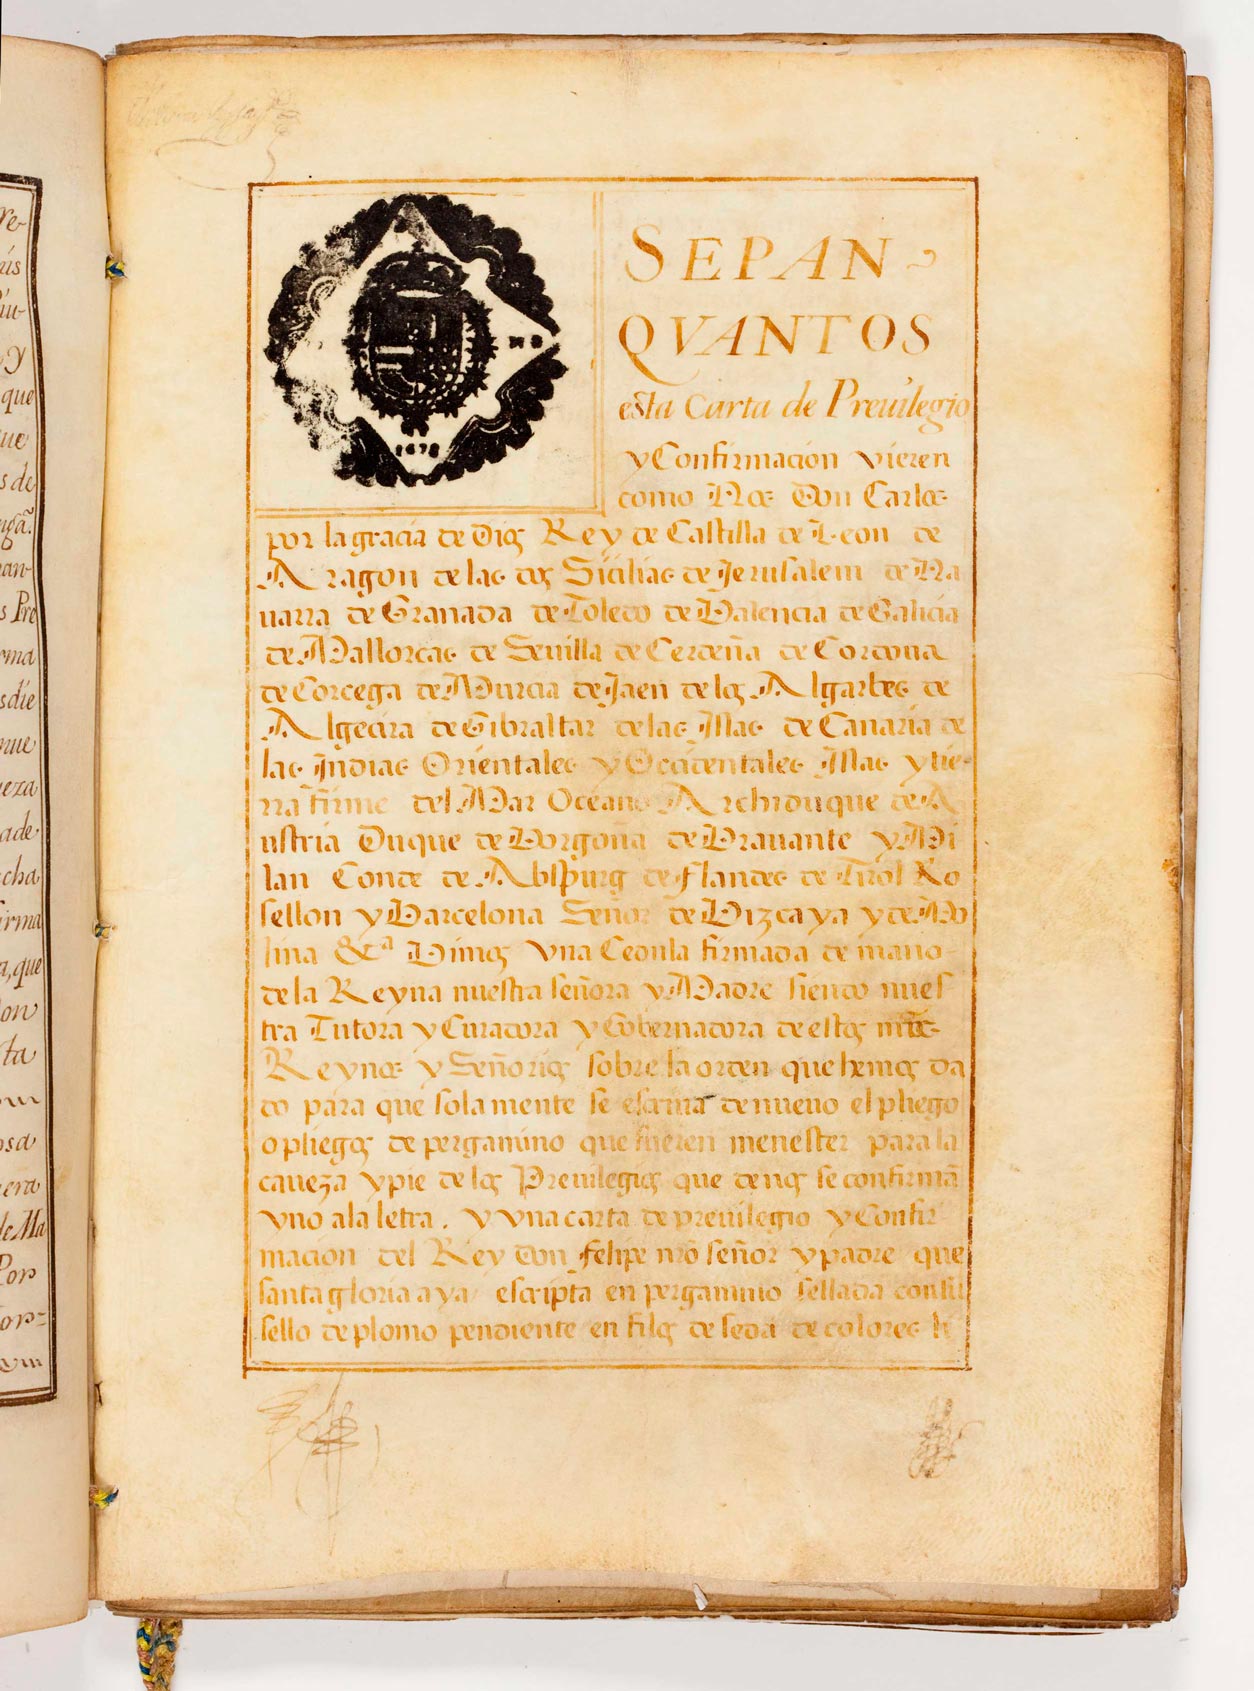 SEPAN
QVANTOS
esta Carta de Preuilegio
y Confirmacion vieren
como Nos Don Carlos
por la gracia de Dios Rey de Castilla de Leon de
Aragon de las dos Sicilias de Jerusalem de Na
uarra de Granada de Toledo de Valencia de Galicia
de Mallorcas de Seuilla de Cerdeña de Cordoua
de Corcega de Murcia de Jaen de los Algarbes de
Algecira de Gibraltar de las Islas de Canaria de
las Indias Orientales y Occidentales Islas y tie-
rra firme del Mar Oceano Archiduque de A
ustria Duque de Borgoña de Brauante y Mi
lan Conde de Abspurg de Flandes de Tirol Ro
sellon y Barcelona Señor de Vizcaya y de Mo
lina &ª Vimos vna Cedula firmada de mano
de la Reyna nuestra señora y Madre siendo nues
tra Tutora y Curadora y Gobernadora de estos nrōs
Reynos y Señorios sobre la orden que hemos da
do para que solamente se escriua de nueuo el pliego
o pliegos de pergamino que fueren menester para la
caueza y pie de los Preuilegios que de nos se confirmā
vno a la letra. y vna carta de preuilegio y Confir
macion del Rey Don Felipe nrō señor y padre que
santa gloria aya escripta en pergamino sellada con su
sello de plomo pendiente en filos de seda de colores li
1678
re-
que
s de
an-
s Pre
rma
nue
eza
ade
cha
irma
a, que
on
sta
osa
era
de Ma
Por